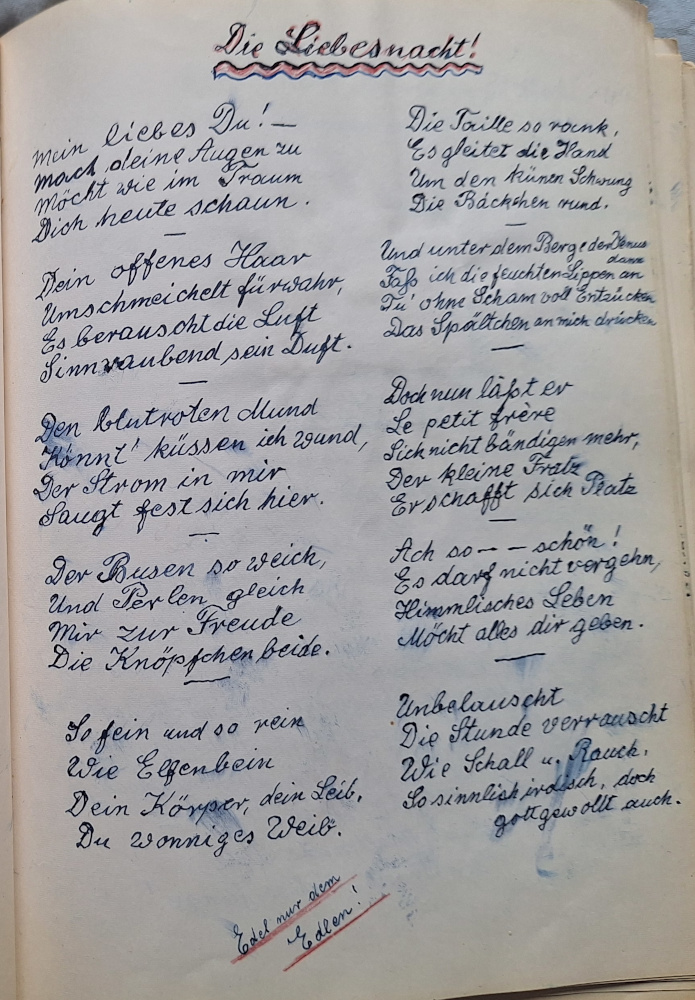 Die Liebesnacht!
Mein liebes Du! —
mach deine Augen zu
Möcht wie im Traum
Dich heute schaun.
—
Dein offenes Haar
Umschmeichelt fürwahr,
Es berauscht die Luft
Sinnraubend sein Duft.
—
Den blutroten Mund
Könnt' küssen ich wund,
Der Strom in mir
Saugt fest sich hier.
—
Der Busen so weich,
Und Perlen gleich
Mir zur Freude
Die Knöpfchen beide.
—
So fein und so rein
Wie Elfenbein
Dein Körper, dein Leib,
Du wonniges Weib.
Die Taille so rank,
Es gleitet die Hand
Um den künen Schwung
Die Bäckchen rund.
—
Und unter dem Berge der Venus
dann
Faß ich die feuchten Lippen an
Tu' ohne Scham voll Entzücken
Das Spältchen an mich drücken
—
Doch nun läßt er
Le petit frère
Sich nicht bändigen mehr,
Der kleine Fratz
Er schafft sich Platz
—
Ach so — — schön!
Es darf nicht vergehn,
Himmlisches Leben
Möcht alles dir geben.
—
Unbelauscht
Die Stunde verrauscht
Wie Schall u. Rauch,
So sinnlich irdisch, doch
gottgewollt auch.
Edel nur dem
Edlen!